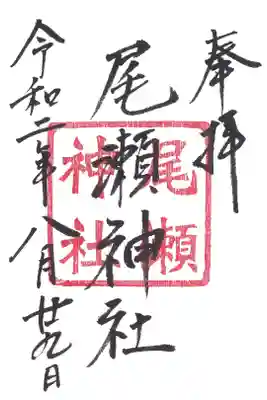 奉拝
尾瀬神社
尾瀬神社
令和二年八月廿九日